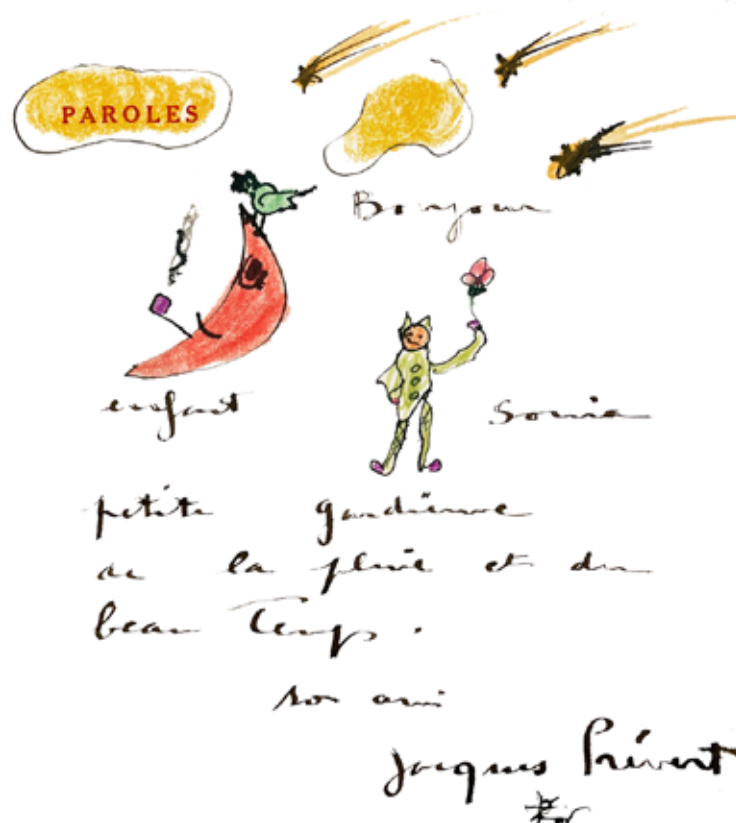 PAROLES
Bonjour
enfant Sonia
petite gardienne
de la pluie et du
beau Temps.
ton ami
Jacques Prévert